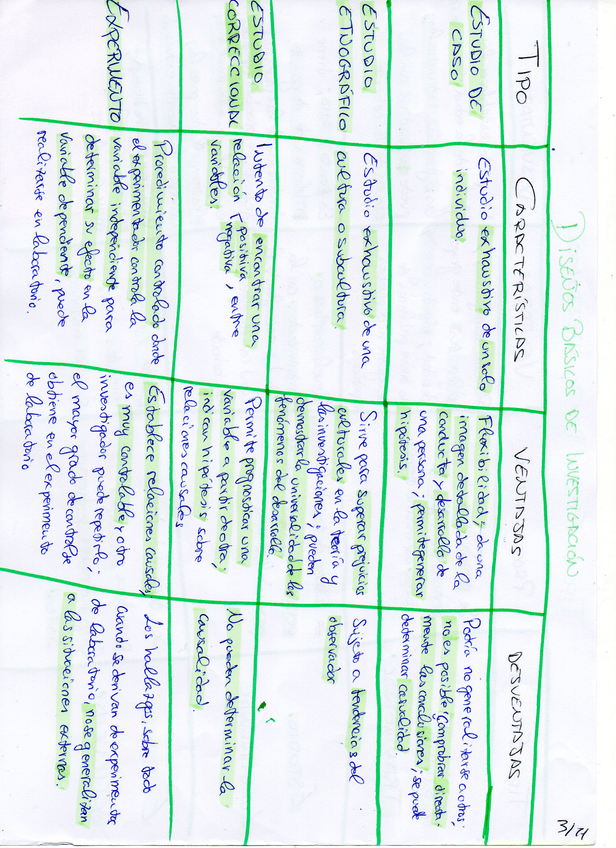 DISEÑOS BÁSICOS DE INVESTIGACIÓN
TIPO
CARACTERÍSTICAS
VENTAJAS
DESVENTAJAS
ESTUDIO DE
CASO
Estudio exhaustivo de un solo
individuo.
Flexibilidad y da una
imagen detallada de la
conducta y desarrollo de
una persona; permite generar
hipótesis.
Podría no generalizarse a otros;
no es posible comprobar directa-
mente las conclusiones; se puede
determinar casualidad.
ESTUDIO
ETNOGRÁFICO
Estudio exhaustivo de una
cultura o subcultura.
Sirve para superar prejuicios
culturales en la teoría y
las investigaciones; pueden
demostrar la universalidad de los
fenómenos del desarrollo.
Sujeto a tendencias del
observador
ESTUDIO
CORRECCIONAL
Intento de encontrar una
relación positiva, entre
negativa
variables.
Permite pronosticar una
variable a partir de otra;
indican hipótesis sobre
relaciones causales
No pueden determinar la
causalidad.
EXPERIMENTO
Procedimiento controlado donde
el experimentador controla la
variable independiente para
determinar su efecto en la
variable dependiente, puede
realizarse en laboratorio.
Establece relaciones causales,
es muy controlable y otro
investigador puede repetirlo.
el mayor grado de control se
obtiene en el experimento
de laboratorio
Los hallazgos, sobre todo
cuando se derivan de experimentos
de laboratorio, no se generalizan
a las situaciones externas.
3/21